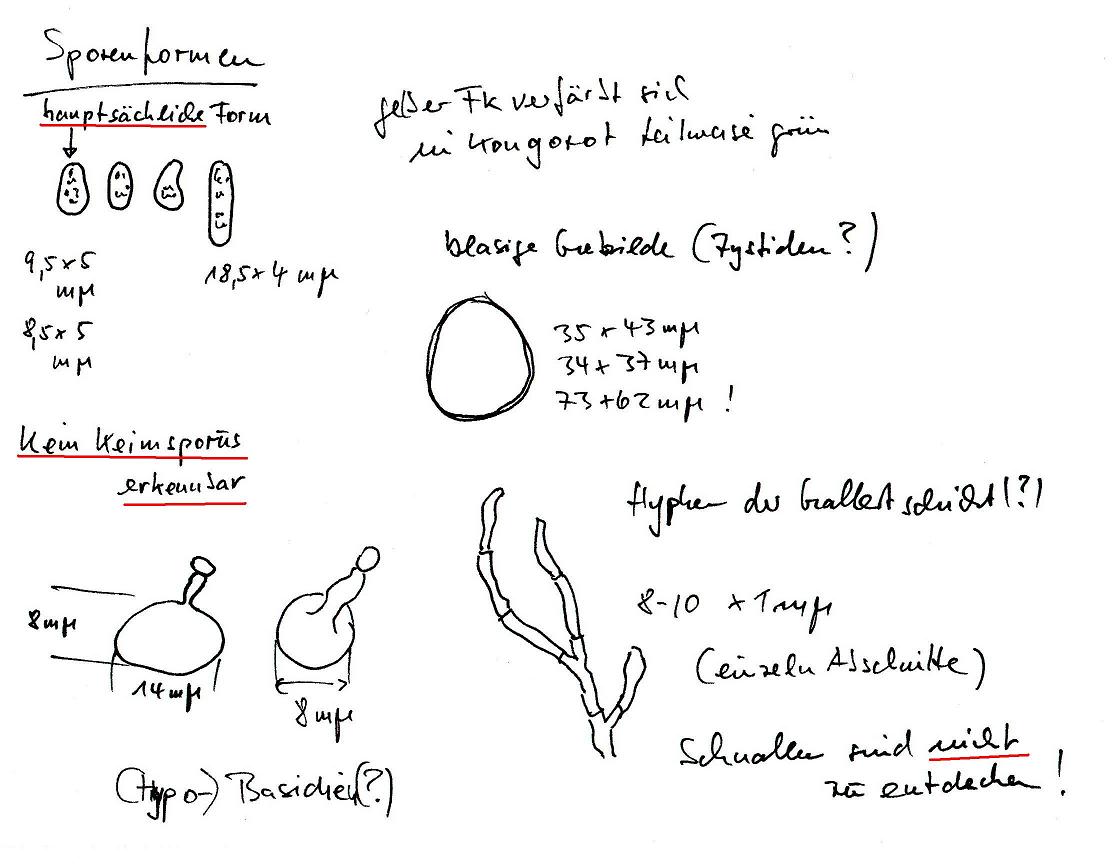 Sporenformen
hauptsächliche Form
9,5 x 5
mµ
8,5 x 5
mµ
18,5 x 4 mµ
Kein Keimsporus
erkennbar
8mµ
14mµ
8mµ
(Hypo-) Basidien(?)
gelber Fk verfärbt sich
in Kongorot teilweise grün
blasige Gebilde (Zystiden?)
35 x 43 mµ
34 x 37 mµ
73 x 62 mµ !
Hyphen der Gallertschicht(?)
8-10 x 1 mµ
(einzeln Abschnitte)
Schnallen sind nicht
zu entdecken !